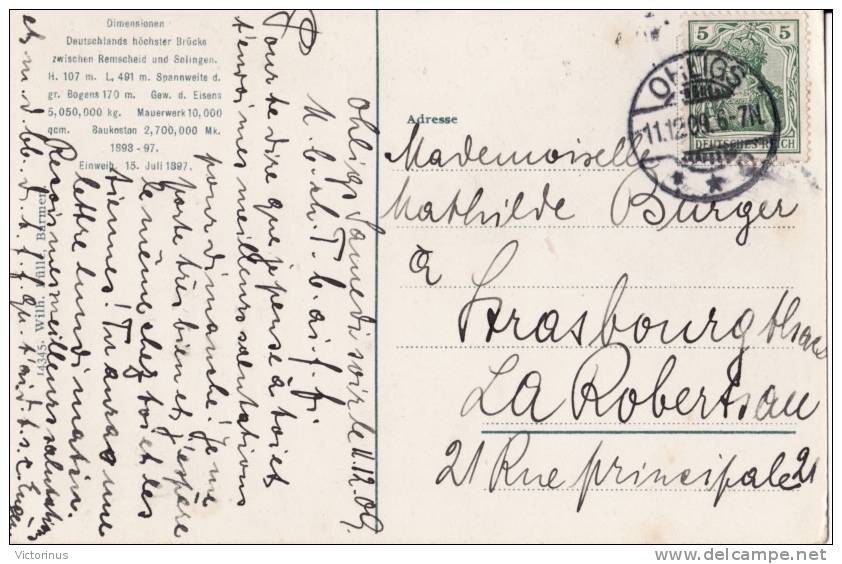 Dimensionen
Deutschlands höchster Brücke
zwischen Remscheid und Solingen.
H. 107 m. L. 491 m. Spannweite d.
gr. Bogens 170 m. Gew. d. Eisens
5,050,000 kg. Mauerwerk 10,000
qcm. Baukosten 2,700,000 Mk.
1893-97.
Einweih. 15. Juli 1897.
14345. Wilh. Fülle, Barmen
Ohligs Samedi soir le 11.12.09.
M. b. ch. T. b. ai. f. f.
Pour te dire que je pense à toi et
t'envoi mes meilleurs salutations
pour dimanche! Je me
porte très bien et j'espère
le même chez toi et les
tiennes! Tu auras une
lettre lundi matin.
Reçois mes meilleurs salutations
et m. d. bb. d. t. f. f. Eugène
Adresse
Mademoiselle
Mathilde Burger
à
Strasbourg Elsass
La Robertsau
21 Rue principale 21
5 5
DEUTSCHES REICH
OHLIGS
11.12.09. 6-7N
Victorinus
delcampe.net